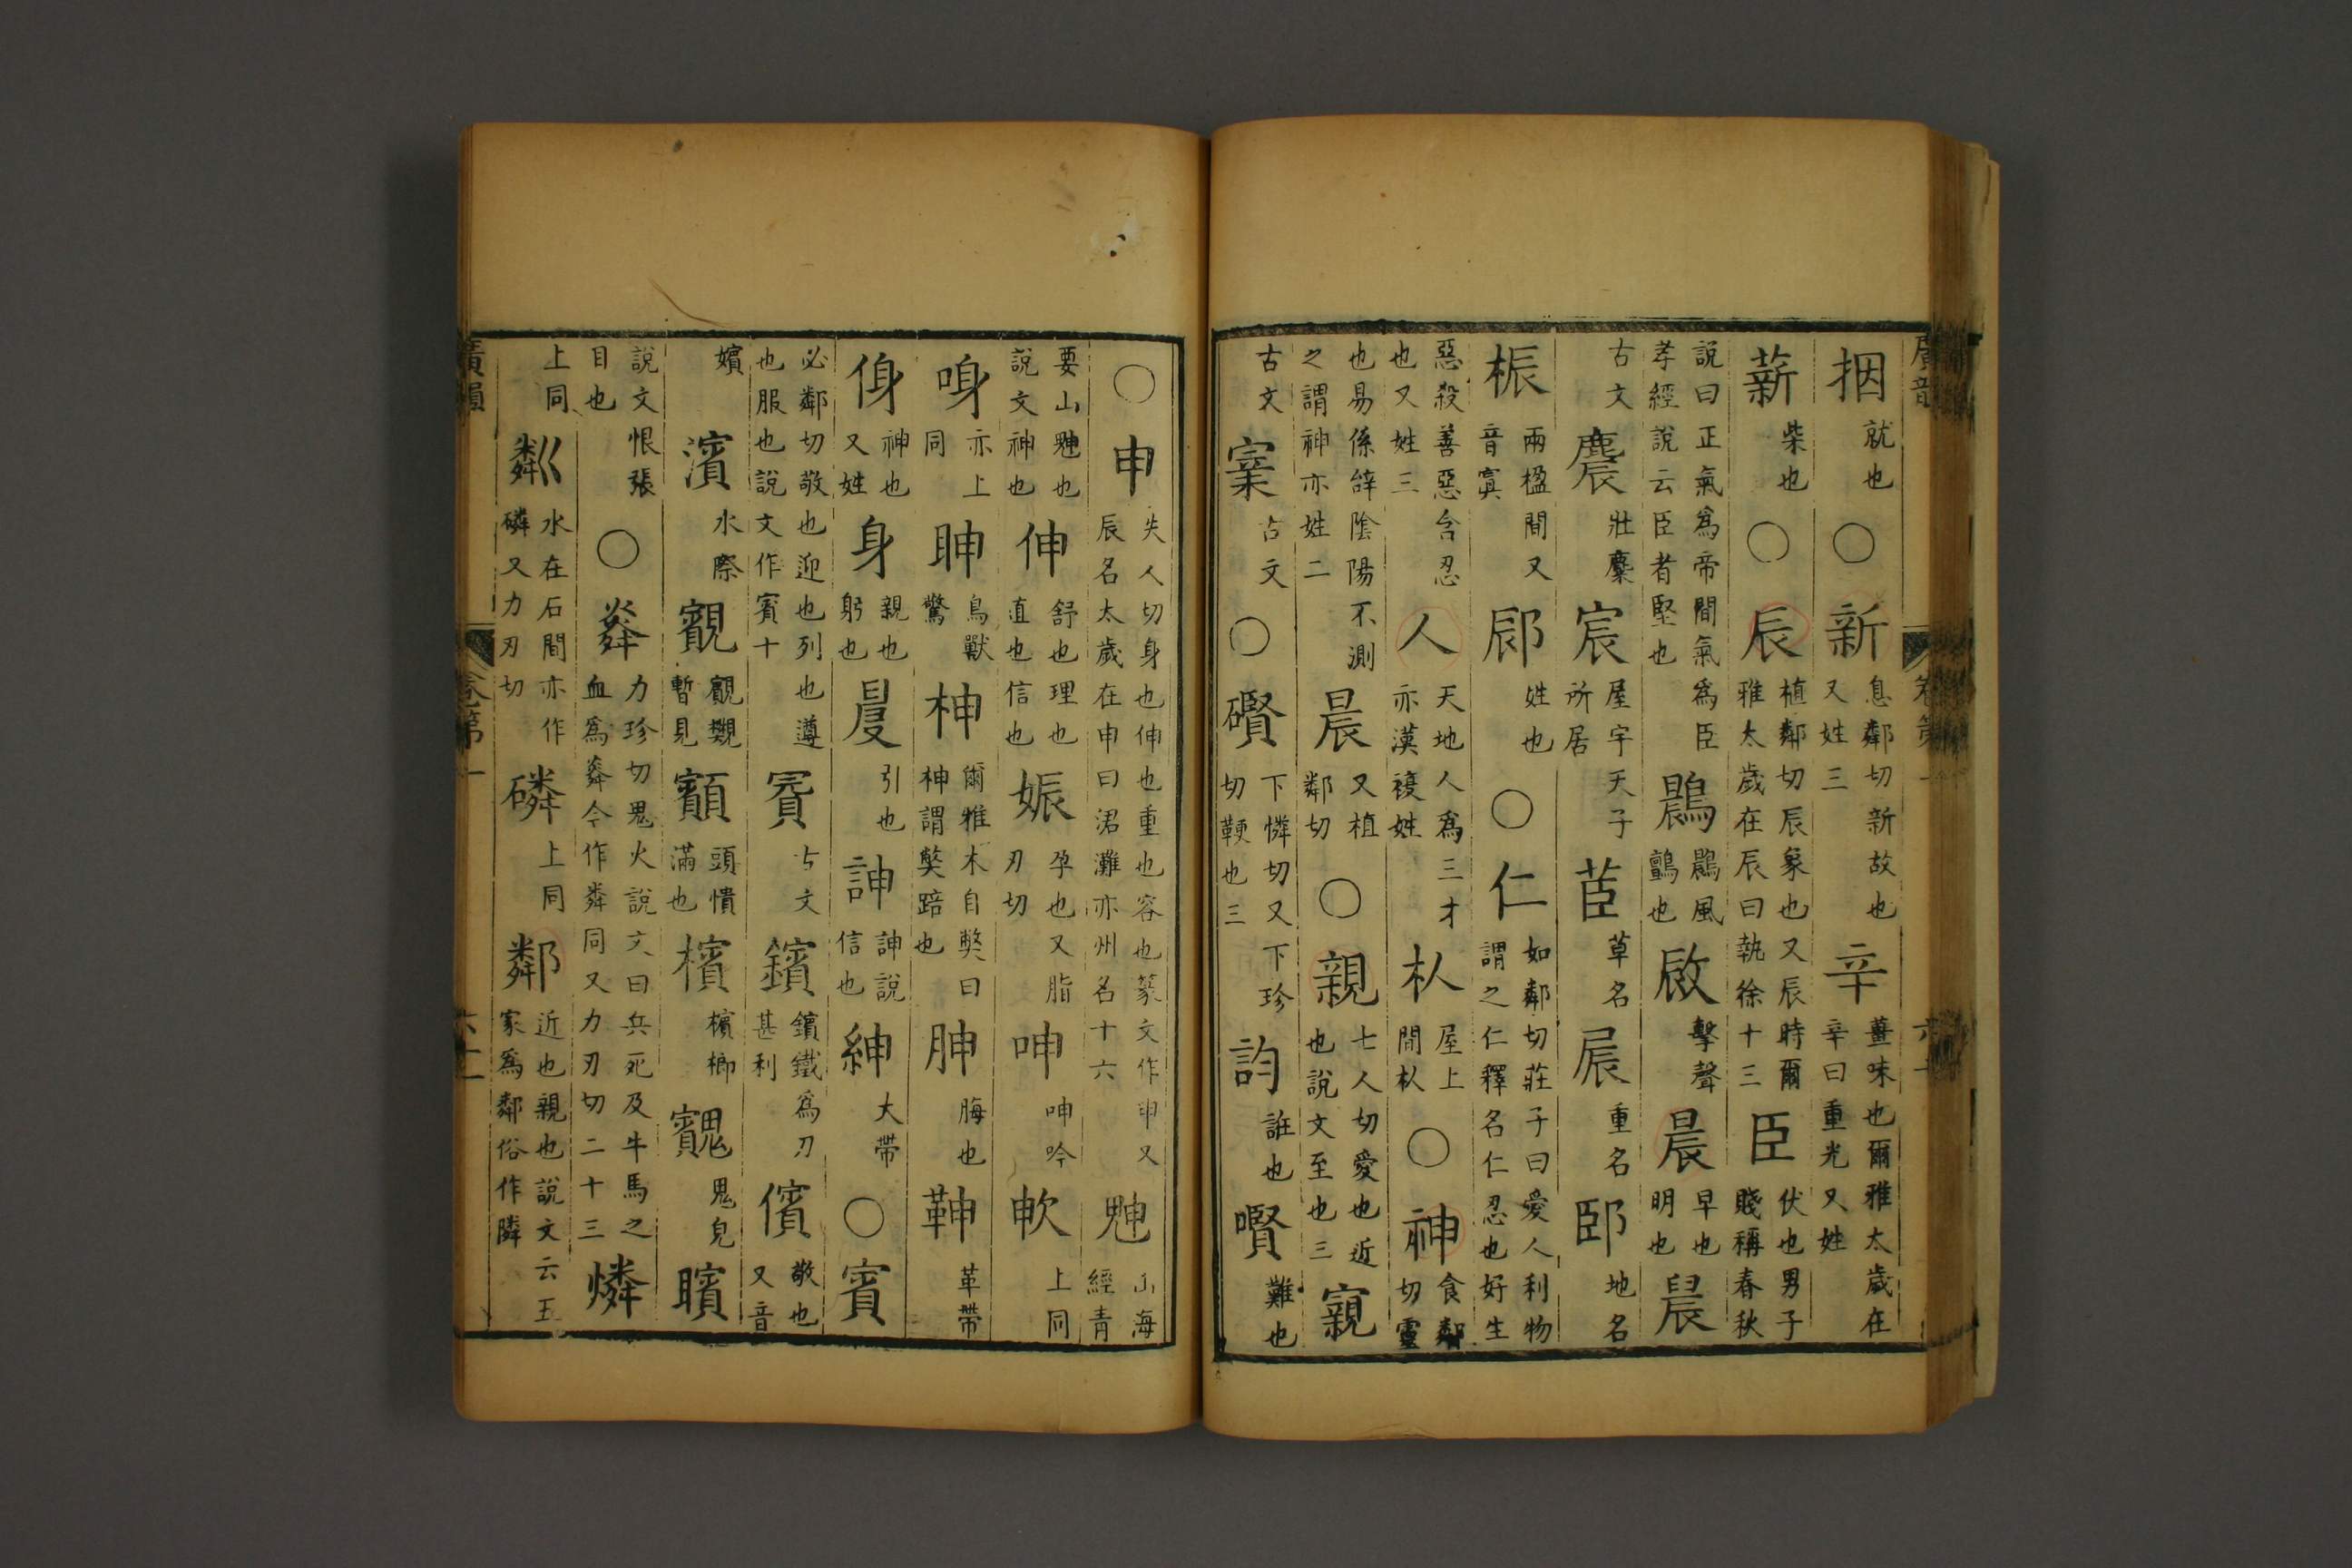 捆就也〇新息鄰切新故也又姓三辛薑味也爾雅太歲在辛曰重光又姓
薪柴也〇辰植鄰切辰象也又辰時爾雅太歲在辰曰執徐十三臣伏也男子賤稱春秋
說曰正氣爲帝閒氣爲臣孝經說云臣者堅也鷐鷐風鸇也敐擊聲晨早也明也䢅
古文麎牡麋宸屋宇天子所居茞草名䢻重名郖地名
桭兩楹間又音寘䢻姓也〇仁如鄰切莊子曰愛人利物謂之仁釋名仁忍也好生
惡殺善惡含忍也又姓三人天地人爲三才亦漢複姓朲屋上間朲〇神食鄰切靈
也易係辝陰陽不測之謂神亦姓二晨又植鄰切〇親七人切愛也近也說文至也三寴
古文㝯古文〇礥下憐切又下珍切鞕也三訇誑也臔難也
〇申失人切身也伸也重也容也篆文作申又辰名太歲在申曰涒灘亦州名十六䰠山海經青
要山䰠也說文神也伸舒也理也直也信也娠孕也又脂刃切呻呻吟㰮上同
㖘亦上同眒鳥獸驚柛爾雅木自獘曰神謂獘踣也胂脢也䩼革帶
㑗神也又姓身親也躬也𦥔引也訷訷說信也紳大帶〇賓
必鄰切敬也迎也列也遵也服也說文作賓十賔古文鑌鑌鐵爲刀甚利儐敬也又音
嬪濱水際覿覿覶暫見顮頭憒滿也檳檳榔䰼鬼皃矉
說文恨張目也〇粦力珍切鬼火說文曰兵死及牛馬之血爲粦今作粦同又力刃切二十三燐
上同粼水在石間亦作磷又力刃切磷上同鄰近也親也說文云五家爲鄰俗作隣
廣韻
卷第一